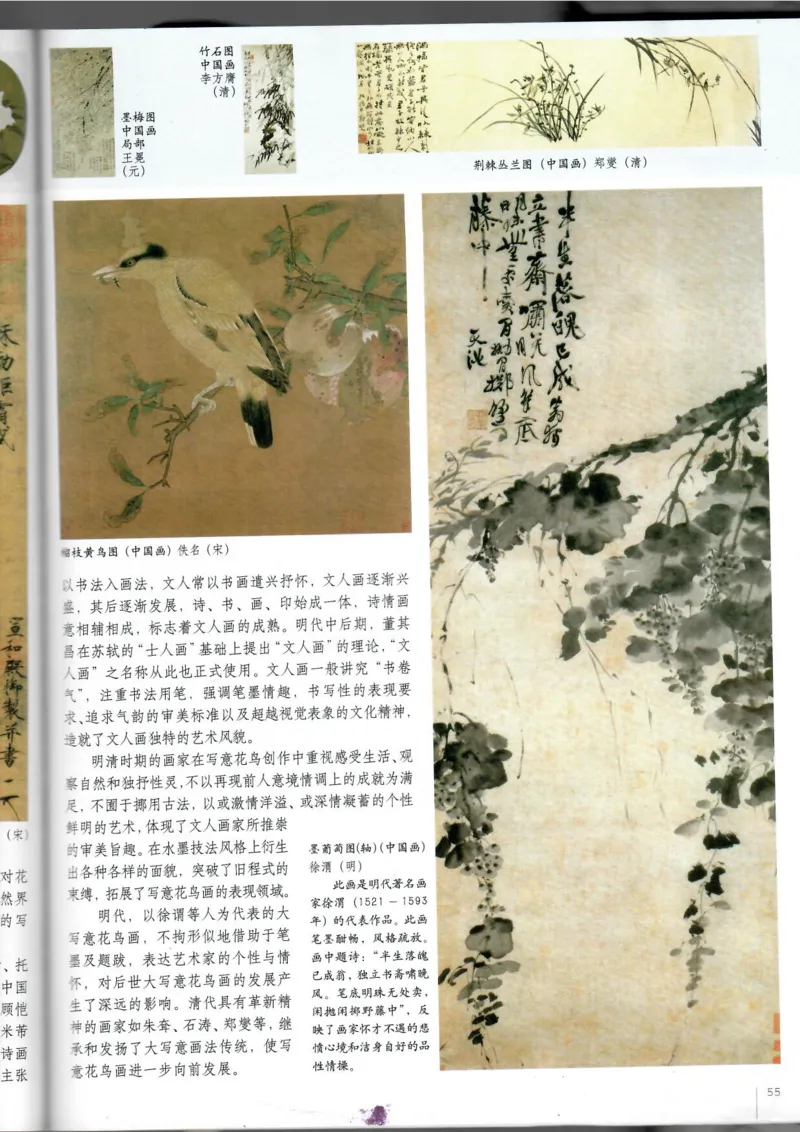 竹石图
中国画
李方膺
(清)
墨梅图
中国画
局部
王冕
(元)
荆棘丛兰图（中国画）郑燮（清）
半生落魄已成翁
立书斋啸晚风笔底
藤中
天池
榴枝黄鸟图（中国画）佚名（宋）
以书法入画法，文人常以书画遣兴抒怀，文人画逐渐兴
盛，其后逐渐发展，诗、书、画、印始成一体，诗情画
意相辅相成，标志着文人画的成熟。明代中后期，董其
昌在苏轼的“士人画”基础上提出“文人画”的理论，“文
人画”之名称从此也正式使用。文人画一般讲究“书卷
气”，注重书法用笔，强调笔墨情趣，书写性的表现要
求、追求气韵的审美标准以及超越视觉表象的文化精神，
造就了文人画独特的艺术风貌。
明清时期的画家在写意花鸟创作中重视感受生活、观
察自然和独抒性灵，不以再现前人意境情调上的成就为满
足，不囿于挪用古法，以或激情洋溢、或深情凝蓄的个性
鲜明的艺术，体现了文人画家所推崇
的审美旨趣。在水墨技法风格上衍生
出各种各样的面貌，突破了旧程式的
束缚，拓展了写意花鸟画的表现领域。
明代，以徐谓等人为代表的大
写意花鸟画，不拘形似地借助于笔
墨及题跋，表达艺术家的个性与情
怀，对后世大写意花鸟画的发展产
生了深远的影响。清代具有革新精
神的画家如朱耷、石涛、郑燮等，继
承和发扬了大写意画法传统，使写
意花鸟画进一步向前发展。
墨葡萄图(轴)(中国画)
徐渭（明）
此画是明代著名画
家徐渭（1521－1593
年）的代表作品。此画
笔墨酣畅，风格疏放。
画中题诗：“半生落魄
已成翁，独立书斋啸晚
风。笔底明珠无处卖，
闲抛闲掷野藤中”，反
映了画家怀才不遇的悲
愤心境和洁身自好的品
性情操。
宣和殿御製并書
（宋）
对花
然界
的写
、托
中国
顾恺
米芾
诗画
主张
55